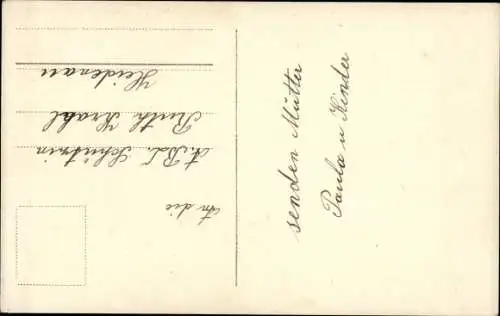 An die
A.B.C. Schützin
Ruth Krahl
Heidenau
senden Mutter
Paula u Kinder